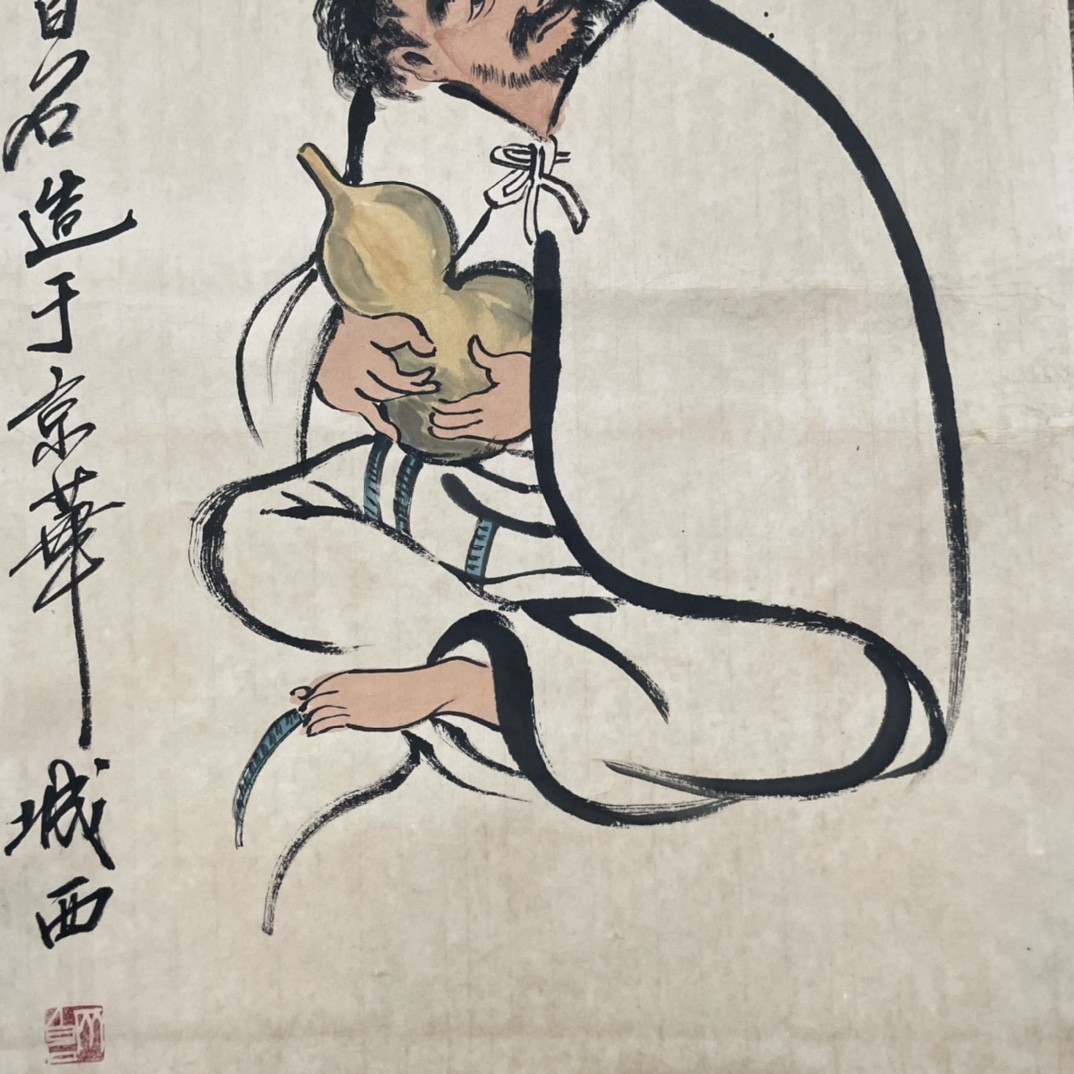 石造于京華城西